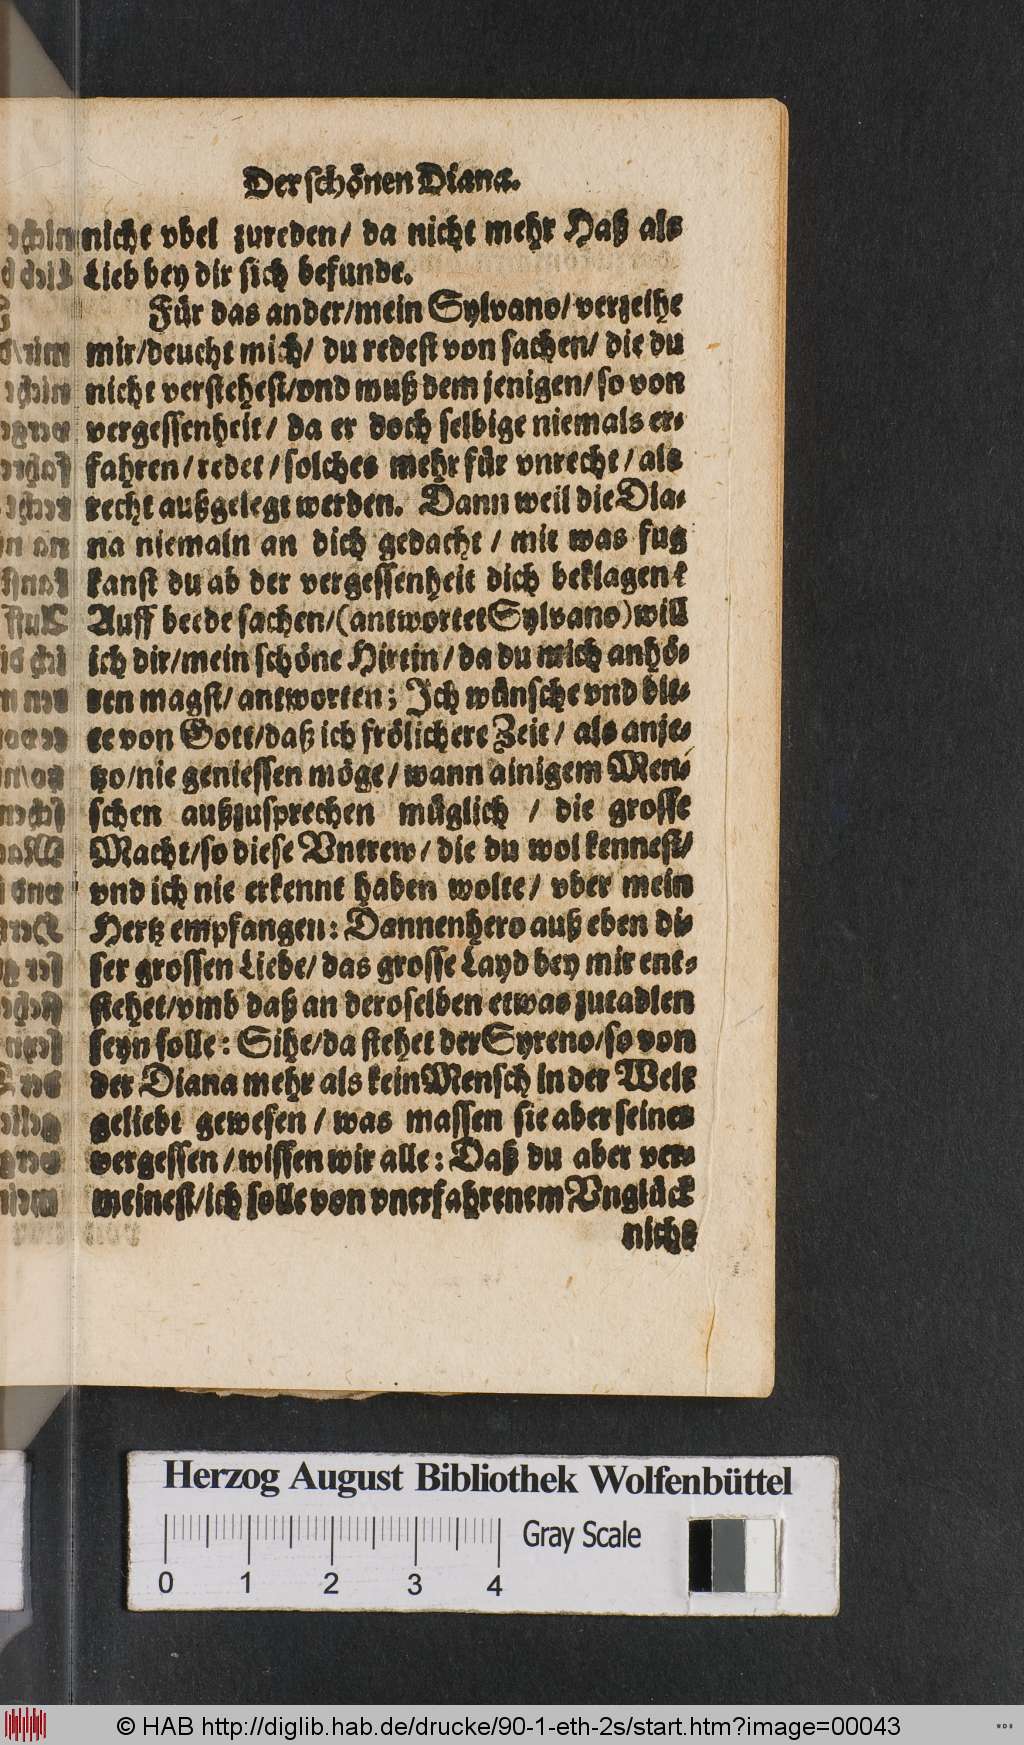 Der schönen Diana.
nicht vbel zureden/ da nicht mehr Haß als
Lieb bey dir sich befunde.
Für das ander/mein Sylvano/verzeihe
mir/deucht mich/ du redest von sachen/ die du
nicht verstehest/vnd muß dem jenigen/ so von
vergessenheit/ da er doch selbige niemals er-
fahren/redet/solches mehr für vnrecht/als
recht außgelegt werden. Dann weil die Dia-
na niemaln an dich gedacht/ mit was fug
kanst du ab der vergessenheit dich beklagen?
Auff beede sachen/(antwortet Sylvano) will
ich dir/mein schöne Hirtin/da du mich anhö-
ren magst/antworten; Ich wünsche vnd bit-
te von Gott/daß ich frölichere Zeit/ als anje-
tzo/nie geniessen möge/wann ainigem Men-
schen außzusprechen müglich / die grosse
Macht/so diese Vntrew/ die du wol kennest/
vnd ich nie erkennt haben wolte/ vber mein
Hertz empfangen: Dannenhero auß eben di-
ser grossen Liebe/ das grosse Layd bey mir ent-
stehet/vmb daß an deroselben etwas zutadlen
seyn solle: Sihe/da stehet der Syreno/so von
der Diana mehr als kein Mensch in der Welt
geliebt gewesen/ was massen sie aber seines
vergessen/wissen wir alle: Daß du aber ver-
meinest/ich solle von vnerfahrenem Vnglück
nichs
Herzog August Bibliothek Wolfenbüttel
0 1 2 3 4
Gray Scale
© HAB http://diglib.hab.de/drucke/90-1-eth-2s/start.htm?image=00043